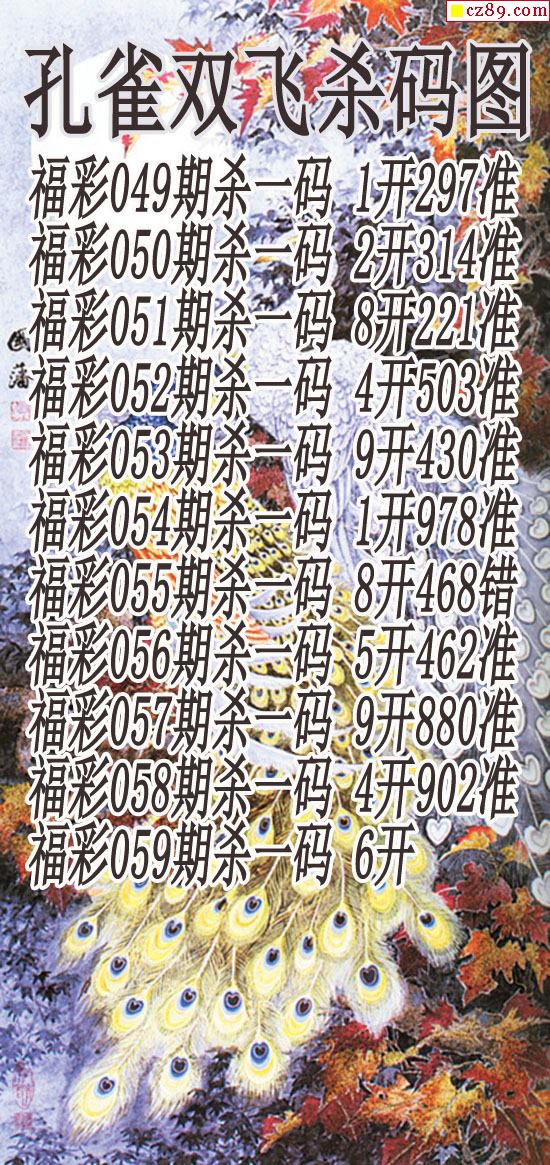 cz89.com
孔雀双飞杀码图
福彩049期杀一码 1开297准
福彩050期杀一码 2开314准
福彩051期杀一码 8开221准
福彩052期杀一码 4开503准
福彩053期杀一码 9开430准
福彩054期杀一码 1开978准
福彩055期杀一码 8开468错
福彩056期杀一码 5开462准
福彩057期杀一码 9开880准
福彩058期杀一码 4开902准
福彩059期杀一码 6开